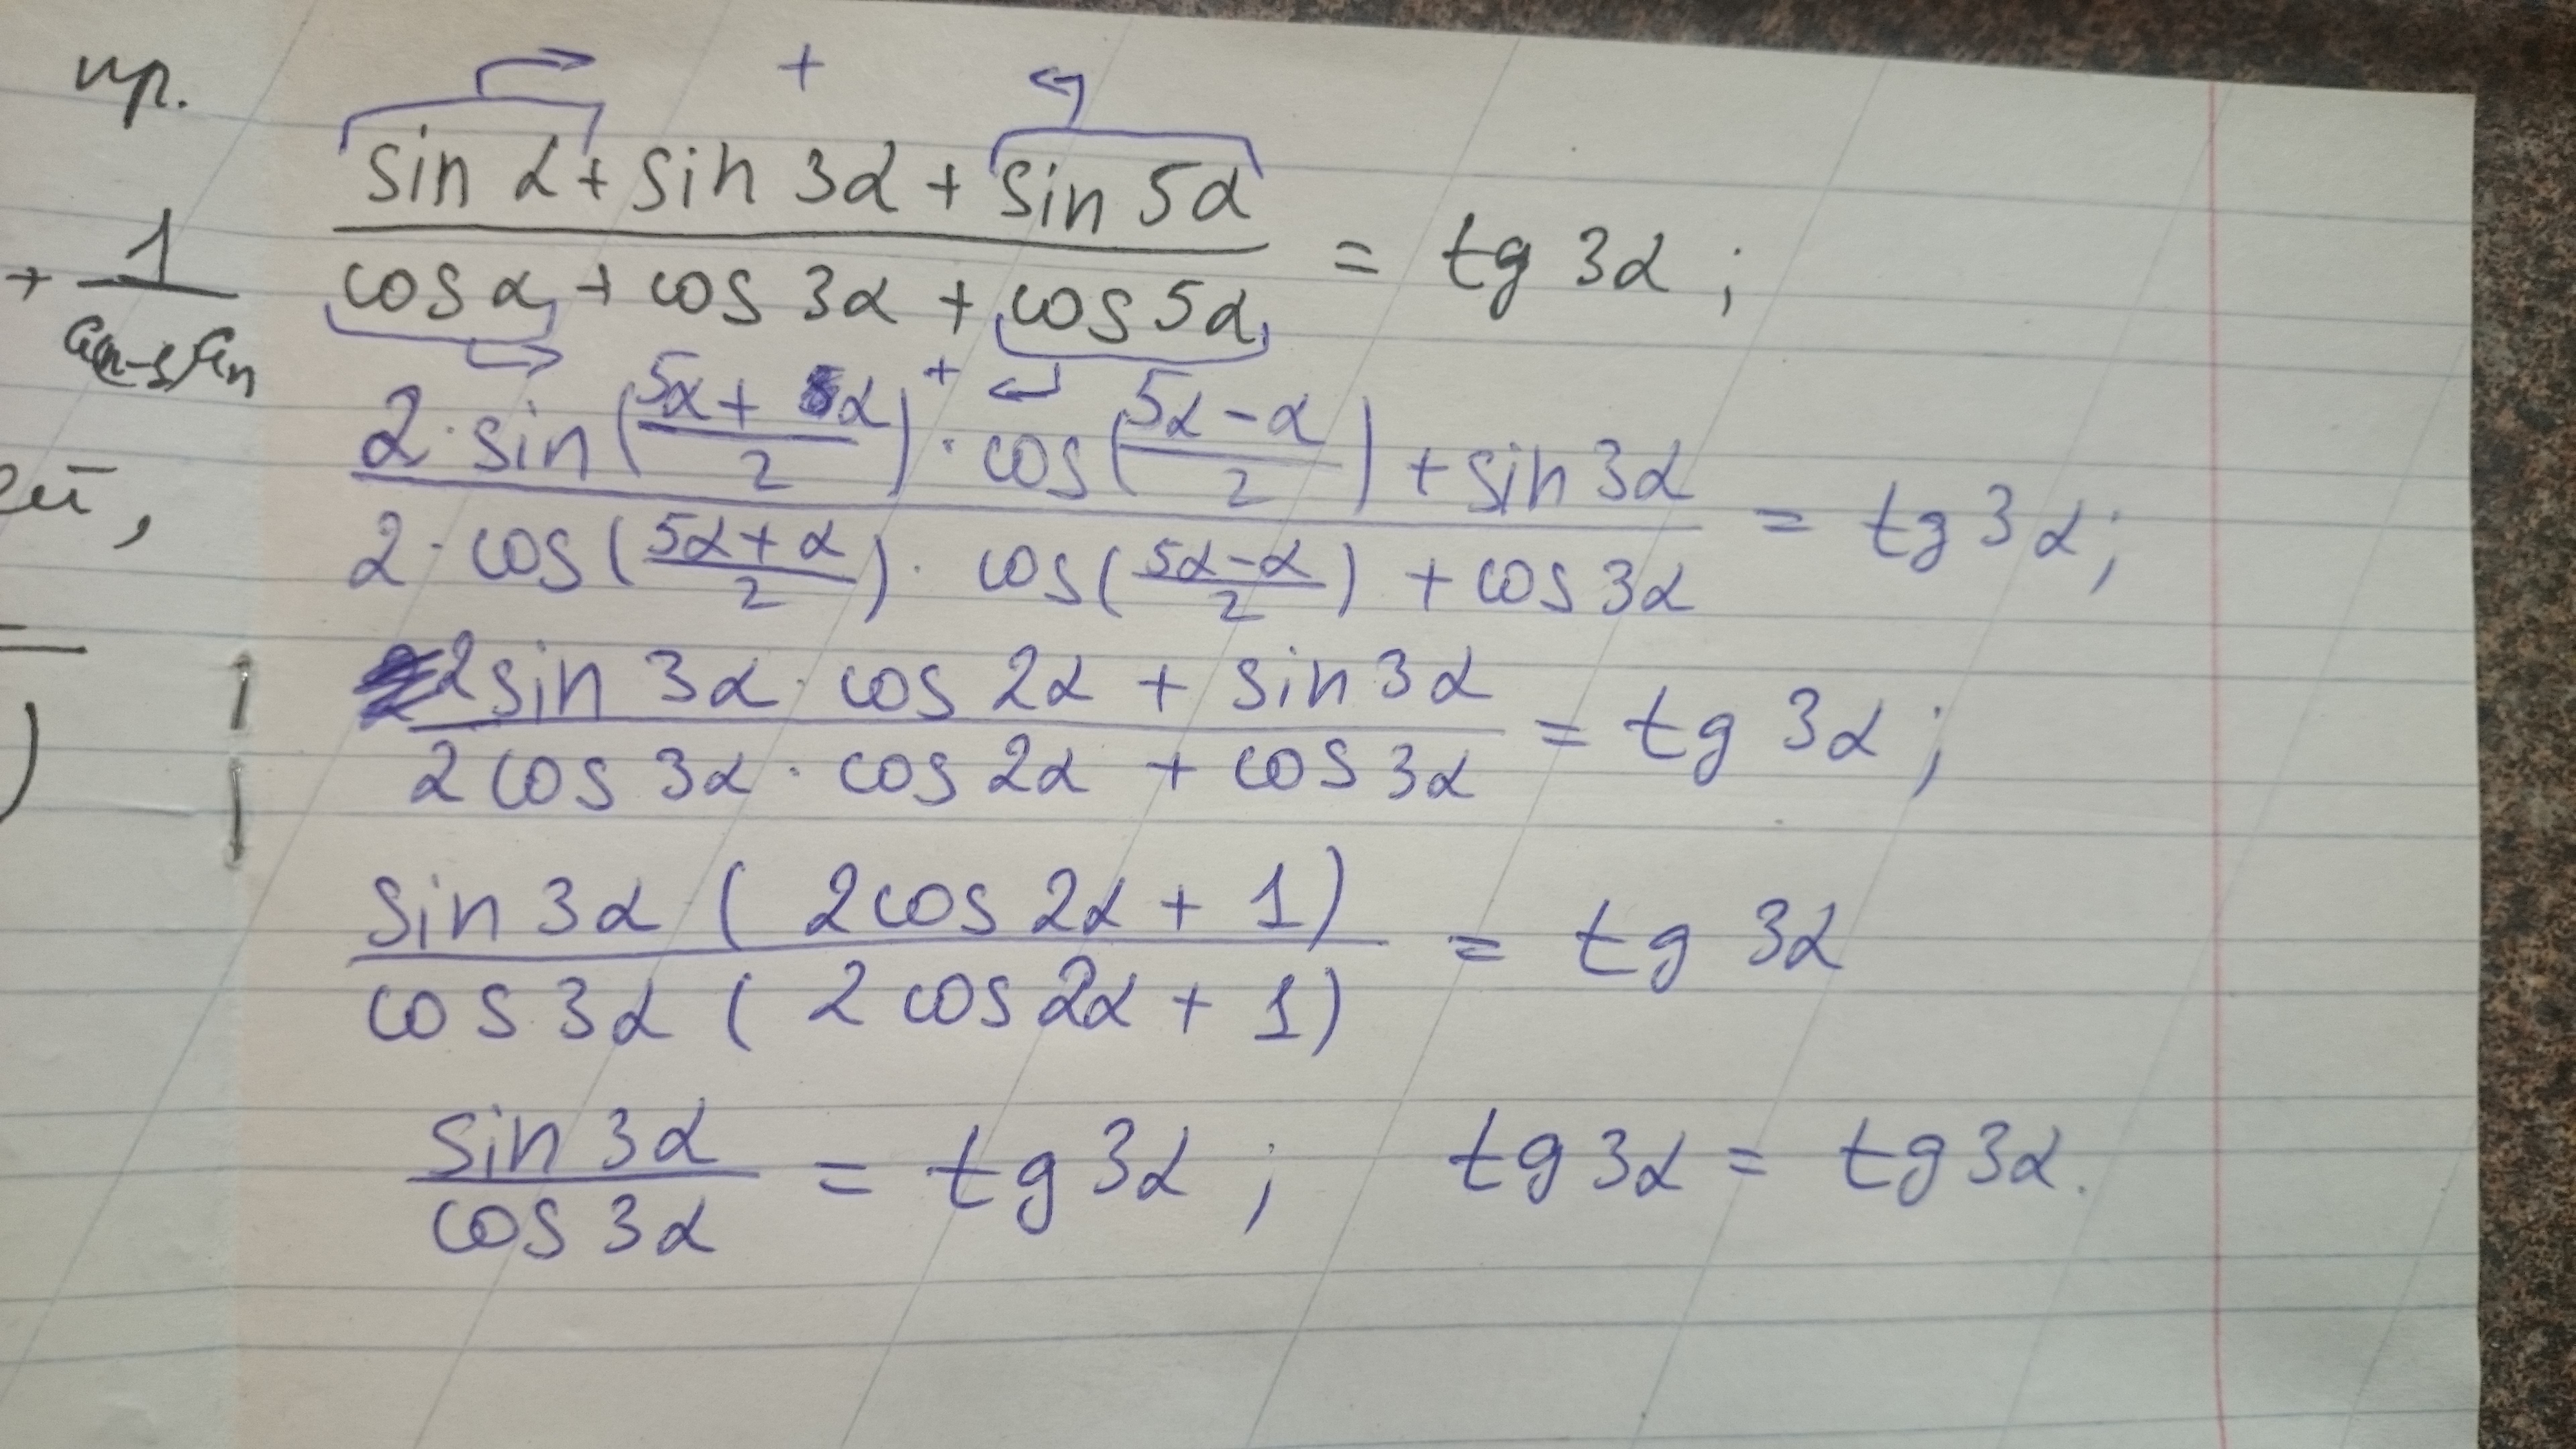 пр.
(sin α + sin 3α + sin 5α) / (cos α + cos 3α + cos 5α) = tg 3α;
+ 1 / 
(2·sin((5α + α)/2) · cos((5α – α)/2) + sin 3α) / (2·cos((5α + α)/2) · cos((5α – α)/2) + cos 3α) = tg 3α;
(2 sin 3α · cos 2α + sin 3α) / (2 cos 3α · cos 2α + cos 3α) = tg 3α;
(sin 3α (2 cos 2α + 1)) / (cos 3α (2 cos 2α + 1)) = tg 3α
sin 3α / cos 3α = tg 3α; tg 3α = tg 3α.